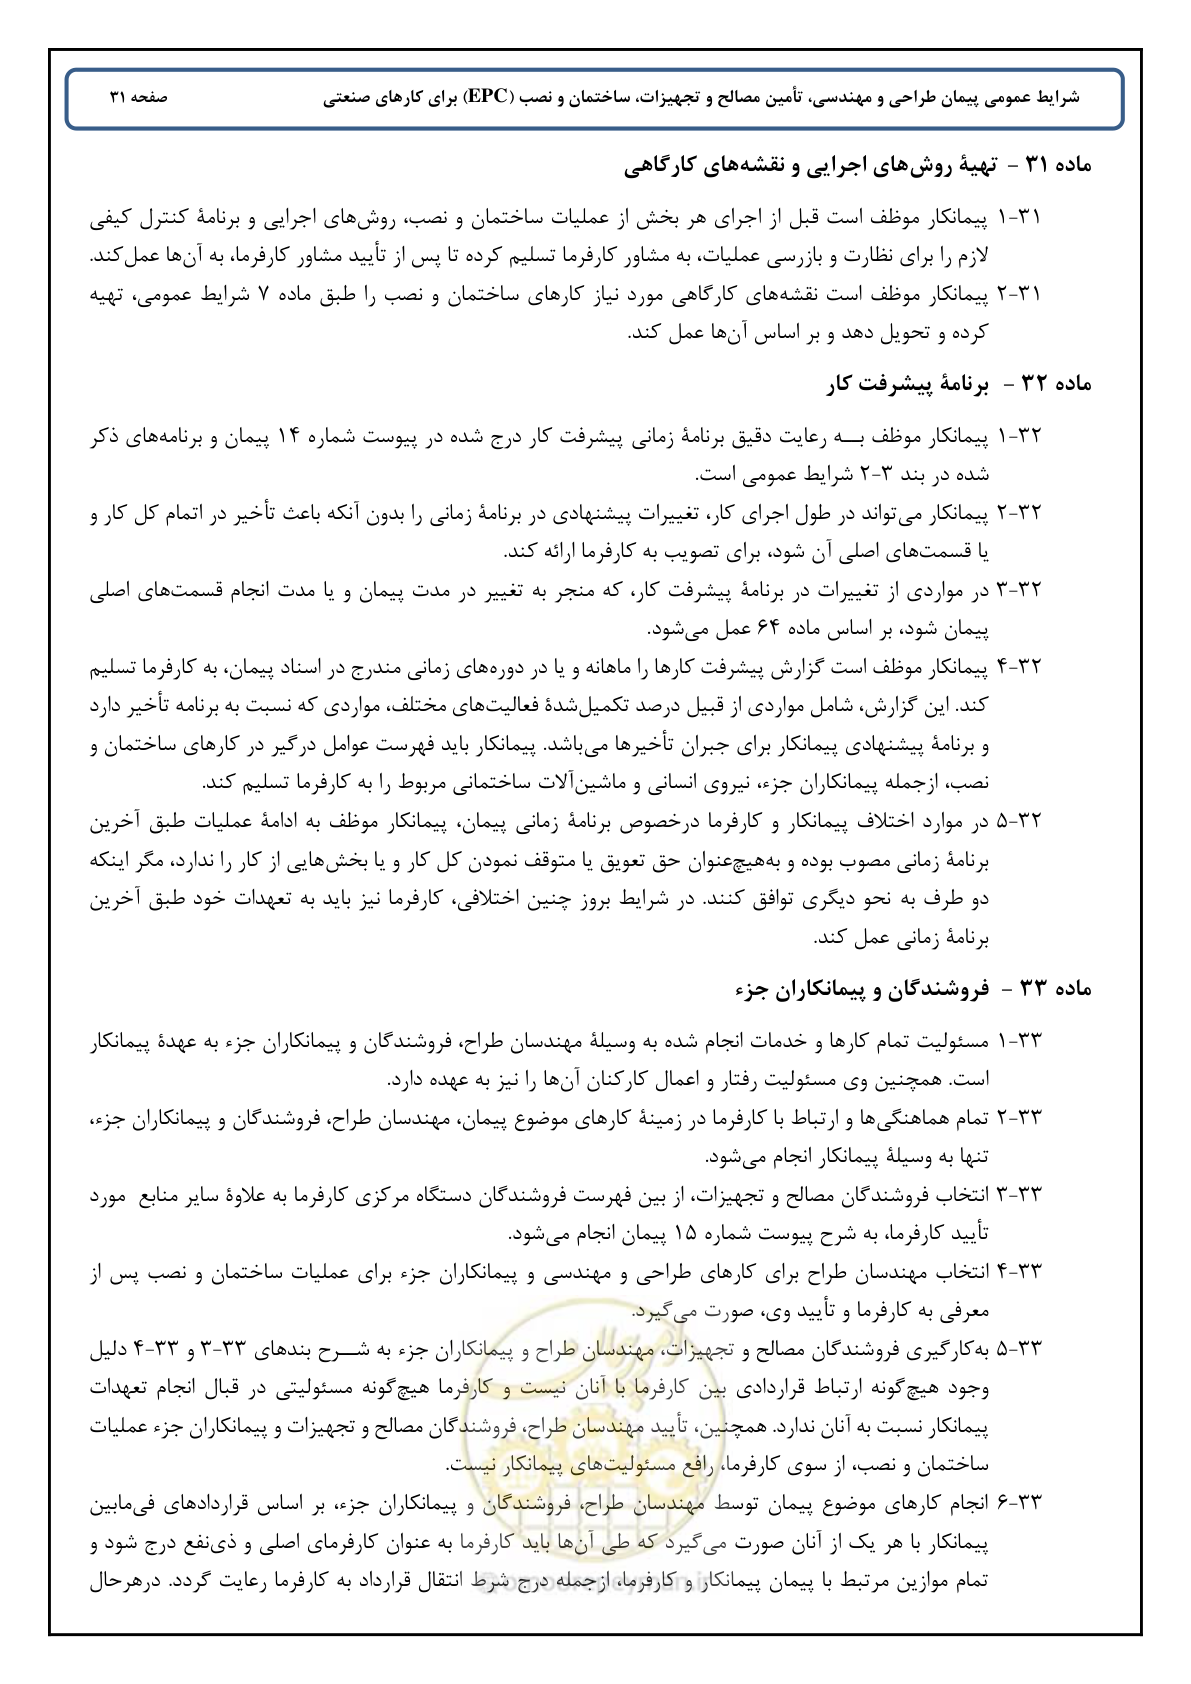 شرایط عمومی پیمان طراحی و مهندسی، تأمین مصالح و تجهیزات، ساختمان و نصب (EPC) برای کارهای صنعتی صفحه ۳۱
ماده ۳۱ – تهیهٔ روش‌های اجرایی و نقشه‌های کارگاهی
۳۱-۱ پیمانکار موظف است قبل از اجرای هر بخش از عملیات ساختمان و نصب، روش‌های اجرایی و برنامهٔ کنترل کیفی
لازم را برای نظارت و بازرسی عملیات، به مشاور کارفرما تسلیم کرده تا پس از تأیید مشاور کارفرما، به آن‌ها عمل‌کند.
۳۱-۲ پیمانکار موظف است نقشه‌های کارگاهی مورد نیاز کارهای ساختمان و نصب را طبق ماده ۷ شرایط عمومی، تهیه
کرده و تحویل دهد و بر اساس آن‌ها عمل کند.
ماده ۳۲ – برنامهٔ پیشرفت کار
۳۲-۱ پیمانکار موظف بـــه رعایت دقیق برنامهٔ زمانی پیشرفت کار درج شده در پیوست شماره ۱۴ پیمان و برنامه‌های ذکر
شده در بند ۳-۲ شرایط عمومی است.
۳۲-۲ پیمانکار می‌تواند در طول اجرای کار، تغییرات پیشنهادی در برنامهٔ زمانی را بدون آنکه باعث تأخیر در اتمام کل کار و
یا قسمت‌های اصلی آن شود، برای تصویب به کارفرما ارائه کند.
۳۲-۳ در مواردی از تغییرات در برنامهٔ پیشرفت کار، که منجر به تغییر در مدت پیمان و یا مدت انجام قسمت‌های اصلی
پیمان شود، بر اساس ماده ۶۴ عمل می‌شود.
۳۲-۴ پیمانکار موظف است گزارش پیشرفت کارها را ماهانه و یا در دوره‌های زمانی مندرج در اسناد پیمان، به کارفرما تسلیم
کند. این گزارش، شامل مواردی از قبیل درصد تکمیل‌شدهٔ فعالیت‌های مختلف، مواردی که نسبت به برنامه تأخیر دارد
و برنامهٔ پیشنهادی پیمانکار برای جبران تأخیرها می‌باشد. پیمانکار باید فهرست عوامل درگیر در کارهای ساختمان و
نصب، ازجمله پیمانکاران جزء، نیروی انسانی و ماشین‌آلات ساختمانی مربوط را به کارفرما تسلیم کند.
۳۲-۵ در موارد اختلاف پیمانکار و کارفرما درخصوص برنامهٔ زمانی پیمان، پیمانکار موظف به ادامهٔ عملیات طبق آخرین
برنامهٔ زمانی مصوب بوده و به‌هیچ‌عنوان حق تعویق یا متوقف نمودن کل کار و یا بخش‌هایی از کار را ندارد، مگر اینکه
دو طرف به نحو دیگری توافق کنند. در شرایط بروز چنین اختلافی، کارفرما نیز باید به تعهدات خود طبق آخرین
برنامهٔ زمانی عمل کند.
ماده ۳۳ – فروشندگان و پیمانکاران جزء
۳۳-۱ مسئولیت تمام کارها و خدمات انجام شده به وسیلهٔ مهندسان طراح، فروشندگان و پیمانکاران جزء به عهدهٔ پیمانکار
است. همچنین وی مسئولیت رفتار و اعمال کارکنان آن‌ها را نیز به عهده دارد.
۳۳-۲ تمام هماهنگی‌ها و ارتباط با کارفرما در زمینهٔ کارهای موضوع پیمان، مهندسان طراح، فروشندگان و پیمانکاران جزء،
تنها به وسیلهٔ پیمانکار انجام می‌شود.
۳۳-۳ انتخاب فروشندگان مصالح و تجهیزات، از بین فهرست فروشندگان دستگاه مرکزی کارفرما به علاوهٔ سایر منابع مورد
تأیید کارفرما، به شرح پیوست شماره ۱۵ پیمان انجام می‌شود.
۳۳-۴ انتخاب مهندسان طراح برای کارهای طراحی و مهندسی و پیمانکاران جزء برای عملیات ساختمان و نصب پس از
معرفی به کارفرما و تأیید وی، صورت می‌گیرد.
۳۳-۵ به‌کارگیری فروشندگان مصالح و تجهیزات، مهندسان طراح و پیمانکاران جزء به شـــرح بندهای ۳۳-۳ و ۳۳-۴ دلیل
وجود هیچ‌گونه ارتباط قراردادی بین کارفرما با آنان نیست و کارفرما هیچ‌گونه مسئولیتی در قبال انجام تعهدات
پیمانکار نسبت به آنان ندارد. همچنین، تأیید مهندسان طراح، فروشندگان مصالح و تجهیزات و پیمانکاران جزء عملیات
ساختمان و نصب، از سوی کارفرما، رافع مسئولیت‌های پیمانکار نیست.
۳۳-۶ انجام کارهای موضوع پیمان توسط مهندسان طراح، فروشندگان و پیمانکاران جزء، بر اساس قراردادهای فی‌مابین
پیمانکار با هر یک از آنان صورت می‌گیرد که طی آن‌ها باید کارفرما به عنوان کارفرمای اصلی و ذی‌نفع درج شود و
تمام موازین مرتبط با پیمان پیمانکار و کارفرما، ازجمله درج شرط انتقال قرارداد به کارفرما رعایت گردد. درهرحال